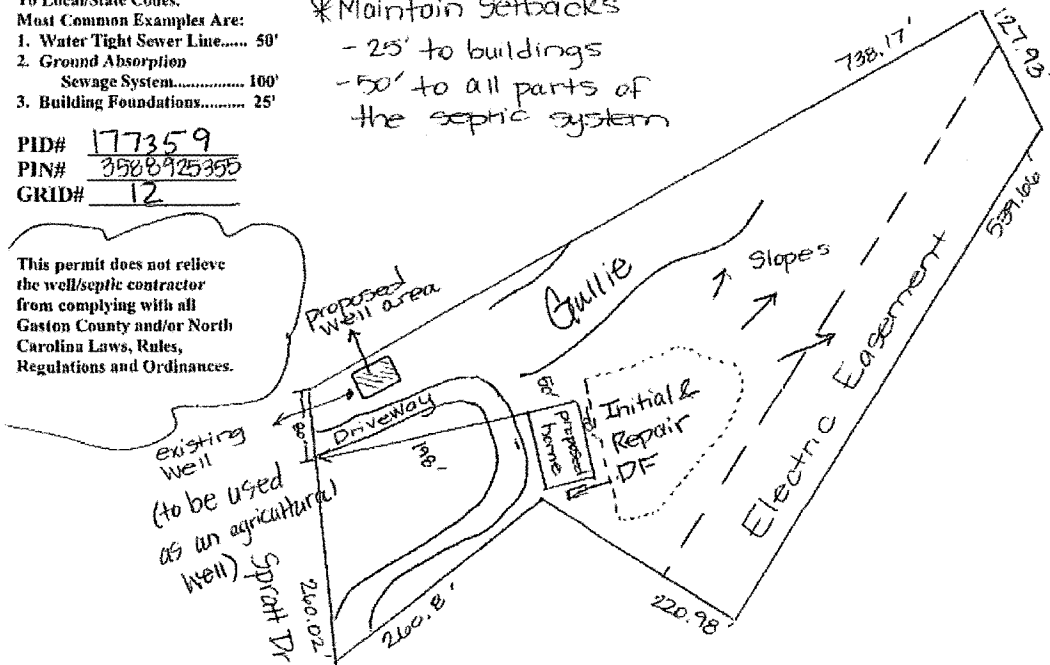 To Local/State Codes.
Most Common Examples Are:
1. Water Tight Sewer Line...... 50'
2. Ground Absorption
Sewage System................ 100'
3. Building Foundations.......... 25'
PID# 177359
PIN# 3588925355
GRID# 12
This permit does not relieve
the well/septic contractor
from complying with all
Gaston County and/or North
Carolina Laws, Rules,
Regulations and Ordinances.
*Maintain Setbacks
- 25' to buildings
- 50' to all parts of
the septic system
738.17'
127.93'
539.66'
Slopes
Gullie
Electric Easement
proposed
well area
Driveway
80'
198'
50'
proposed
home
Initial &
Repair
DF
existing
well
(to be used
as an agricultural
well)
Spratt Dr
260.02'
260.8'
220.98'